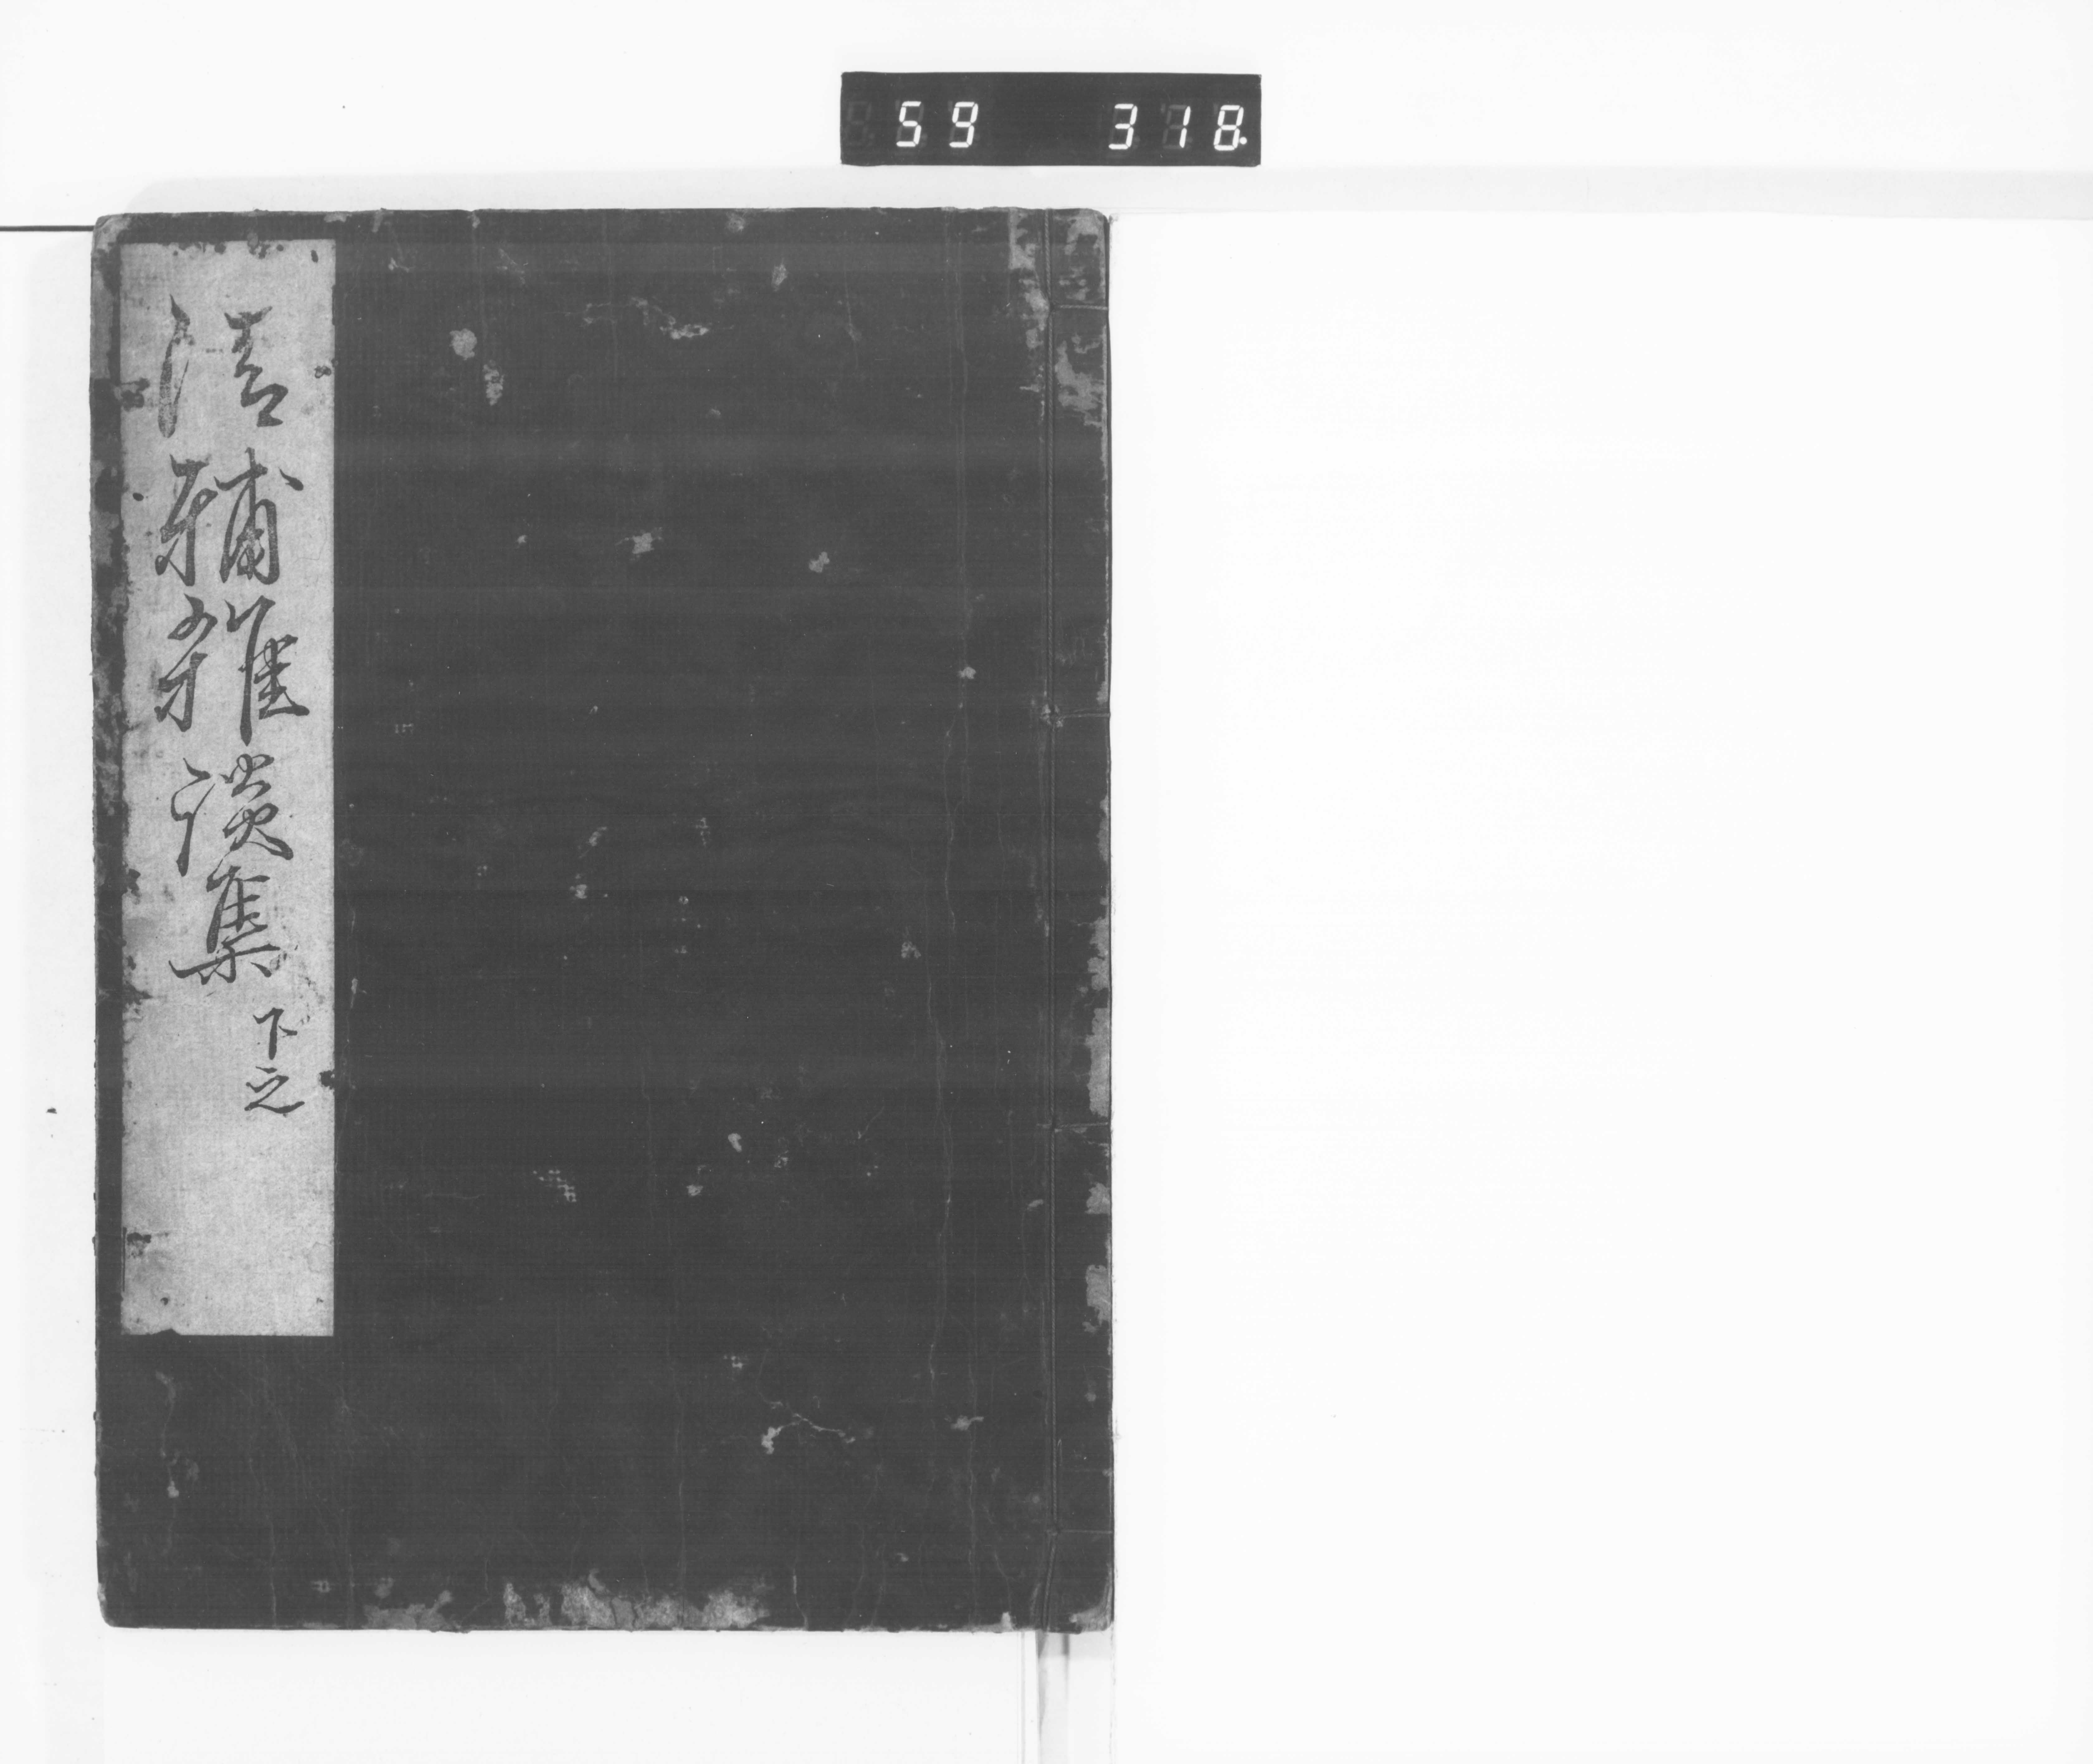 59 318
清輔雑談集 下之